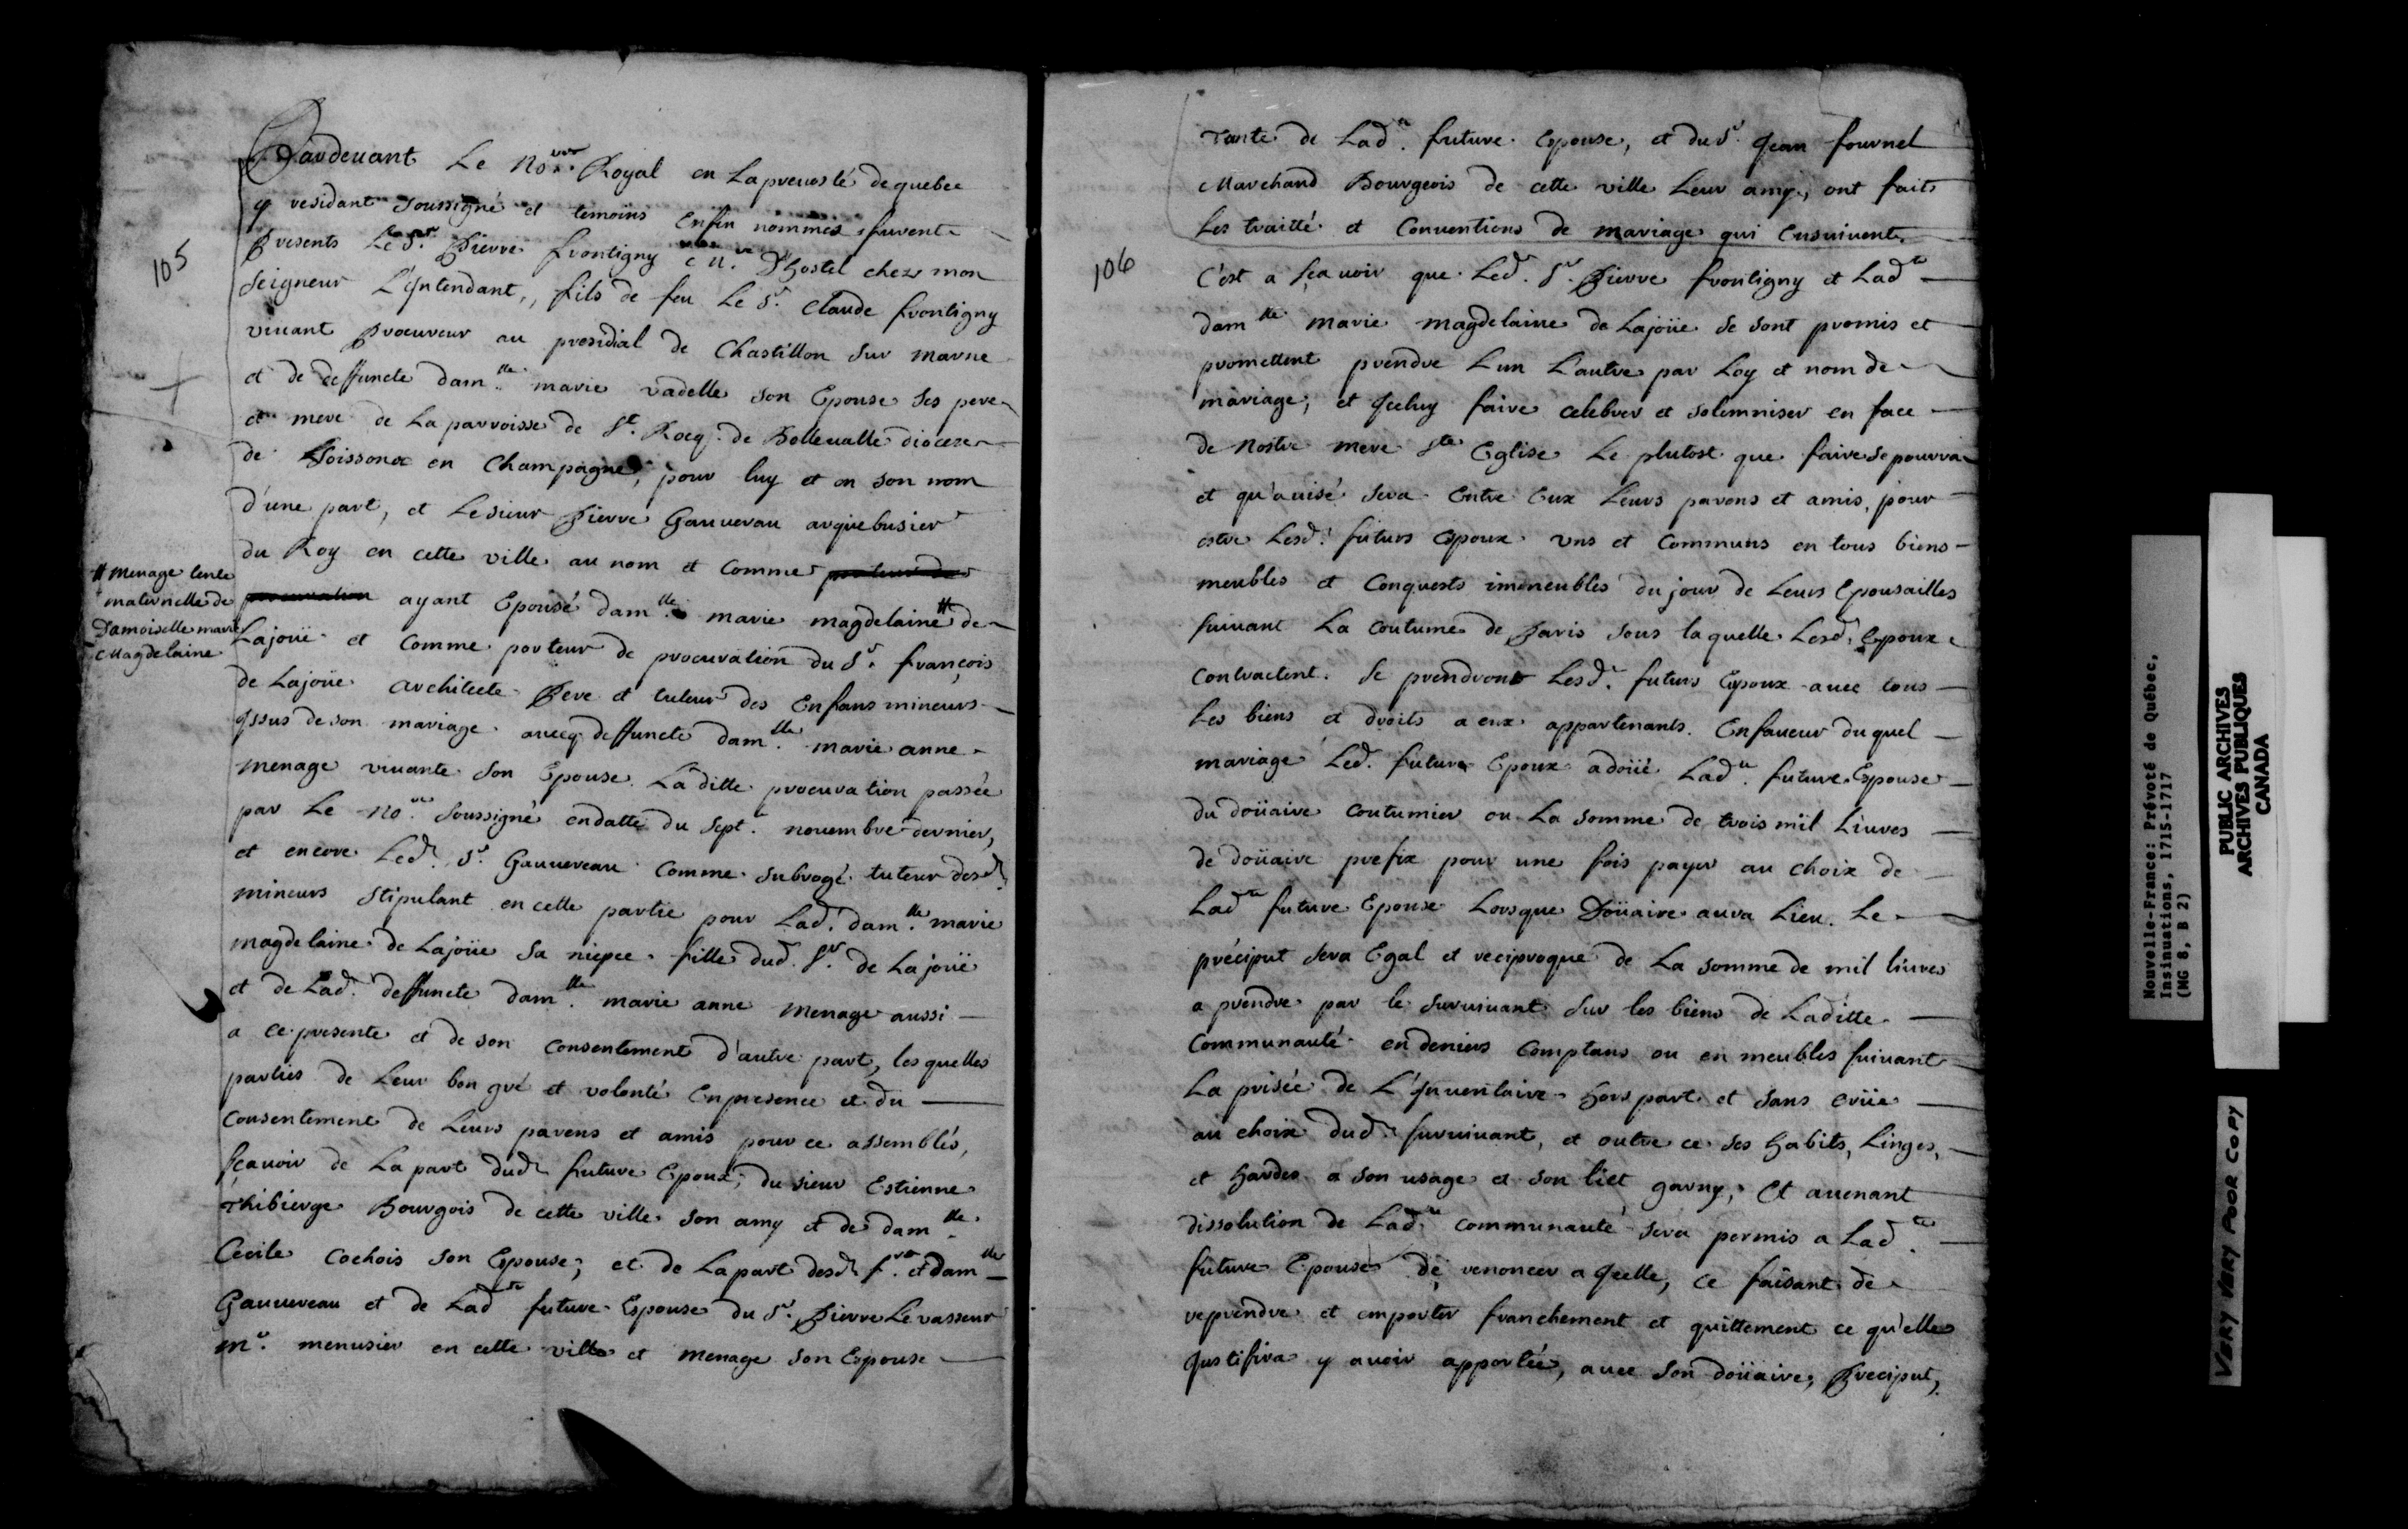 105
Pardevant Le No.re Royal en La prevosté de quebec
y residant Soussigné et temoins Enfin nommés furent
Presents Le S.r Pierre frontigny M.e D'hostel chez mon
Seigneur L'Intendant, fils de feu Le S.r Claude frontigny
vivant Procureur au presidial de Chastillon Sur marne
et de deffuncte dam.lle marie vadelle Son Epouse Ses pere
et mere de La parroisse de S.t Rocq. de Bollevalle diocese
de Soissons en Champagne, pour luy et en son nom
d'une part, et Le sieur Pierre Gauvreau arquebusier
du Roy en cette ville au nom et Comme porteur de
procuration ayant Epousé dam.lle marie magdelaine # de
# Menage tente
maternelle de
Damoiselle marie
Magdelaine
Lajoüe et Comme porteur de procuration du S.r françois
de Lajoüe architecte Pere et tuteur des Enfans mineurs
Issus de son mariage avecq deffuncte dam.lle marie anne
menage vivante Son Epouse La ditte procuration passée
par Le No.re Soussigné en datte du Sept.e novembre dernier,
et encore Led. S.r Gauvreau Comme Subrogé tuteur desd.
mineurs Stipulant en cette partie pour Lad. dam.lle marie
magdelaine de Lajoüe Sa niepce fille dud. S.r de Lajoüe
et de Lad. deffuncte dam.lle marie anne Menage aussi
a ce presente et de son Consentement d'autre part, lesquelles
parties de Leur bon gré et volonté En presence et du
Consentement de Leurs parens et amis pour ce assemblés,
Sçavoir de La part dud. future Epoux, du sieur Estienne
Thibierge Bourgois de cette ville Son amy et de dam.lle
Cecile Cochois Son Epouse; et de La part desd. s.r et dam.lle
Gauvreau et de Lad.te future Epouse du S.r Pierre Levasseur
M.e menusier en cette ville et Menage Son Espouse
106
Tante de Lad.te future Epouse, et du S.r Jean fournel
Marchand Bourgeois de cette ville Leur amy, ont faits
Les traitté et Conventions de mariage qui Ensuivent.
C'est a Sçavoir que Led. S.r Pierre frontigny et Lad.te
dam.lle marie magdelaine de Lajoüe Se Sont promis et
promettent prendre L'un L'autre par Loy et nom de
mariage, et Iceluy faire celebrer et Solemniser en face
de Nostre mere S.te Eglise Le plutost que faire Se pourra
et qu'avisé Sera Entre Eux Leurs parens et amis, pour
estre Lesd. futurs Epoux uns et Communs en tous biens
meubles et Conquests immeubles du jour de Leurs Epousailles
Suivant La Coutume de Paris Sous laquelle Lesd. Epoux
Contractent. Se prendront Lesd. futurs Epoux avec tous
Les biens et droits a eux appartenants. En faveur duquel
mariage Led. future Epoux a doüé Lad.te future Espouse
du doüaire Coutumier ou La Somme de trois mil Livres
de doüaire prefix pour une fois payer au choix de
Lad.te future Epouse Lorsque Doüaire aura Lieu. Le
préciput Sera Egal et reciproque de La Somme de mil livres
a prendre par le Survivant Sur les biens de La ditte
Communauté en deniers Comptans ou en meubles Suivant
La prisée de L'Inventaire hors part et Sans crüe
au choix dud. Survivant, et outre ce Ses habits, Linges,
et hardes a Son usage et Son lict garny, Et avenant
dissolution de Lad.te communauté Sera permis a Lad.te
future Epouse de renoncer a Icelle, ce faisant de
reprendre et emporter franchement et quittement ce qu'elle
Justifira y avoir apportée, avec Son doüaire, Preciput,
Nouvelle-France: Prévoté de Québec,
Insinuations, 1715-1717
(MG 8, B 2)
PUBLIC ARCHIVES
ARCHIVES PUBLIQUES
CANADA
VERY VERY POOR COPY